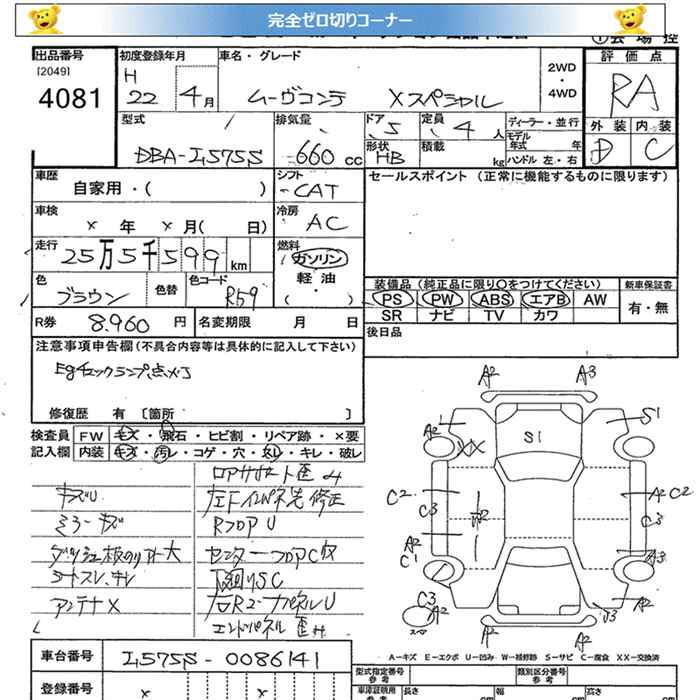 完全ゼロ切りコーナー
出品番号
[2049]
4081
初度登録年月
H
22 4月
車名・グレード
ムーヴコンテ Xスペシャル
2WD
・
4WD
評価点
RA
外装 内装
D C
型式
DBA-L575S
排気量
660 cc
ドア 5
形状 HB
定員 4 人
積載 kg
ディーラー・並行
モデル年式 年
ハンドル 左・右
車歴
自家用・( )
シフト
CAT
セールスポイント (正常に機能するものに限ります)
車検
× 年 × 月( 日)
冷房
AC
走行
25万5千599 km
燃料
ガソリン
軽・油
( )
色
ブラウン
色替
色コード
R59
装備品(純正品に限り○をつけてください)
PS PW ABS エアB AW
SR ナビ TV カワ
新車保証書
有・無
R券 8.960 円
名変期限 月 日
後日品
注意事項申告欄(不具合内容等は具体的に記入して下さい)
Egチェックランプ点灯
修復歴 有 [箇所 ]
検査員 FW キズ・飛石・ヒビ割・リペア跡・×要
記入欄 内装 キズ・汚レ・コゲ・穴・ヌレ・キレ・破レ
キズU
ミラーキズ
アンテナX
RフロアU
センターフロアC
下廻りSC
A2 A3
A2 S1
S1
XX
C2 W2 A2 C2
C3 C3
A2 A3
C1
C3 A2
A2 A2
A-キズ E-エクボ U-凹み W-補修跡 S-サビ C-腐食 XX-交換済
車台番号 L575S-0086141
登録番号
型式指定番号
参考
類別区分番号
参考
長さ 幅 高さ